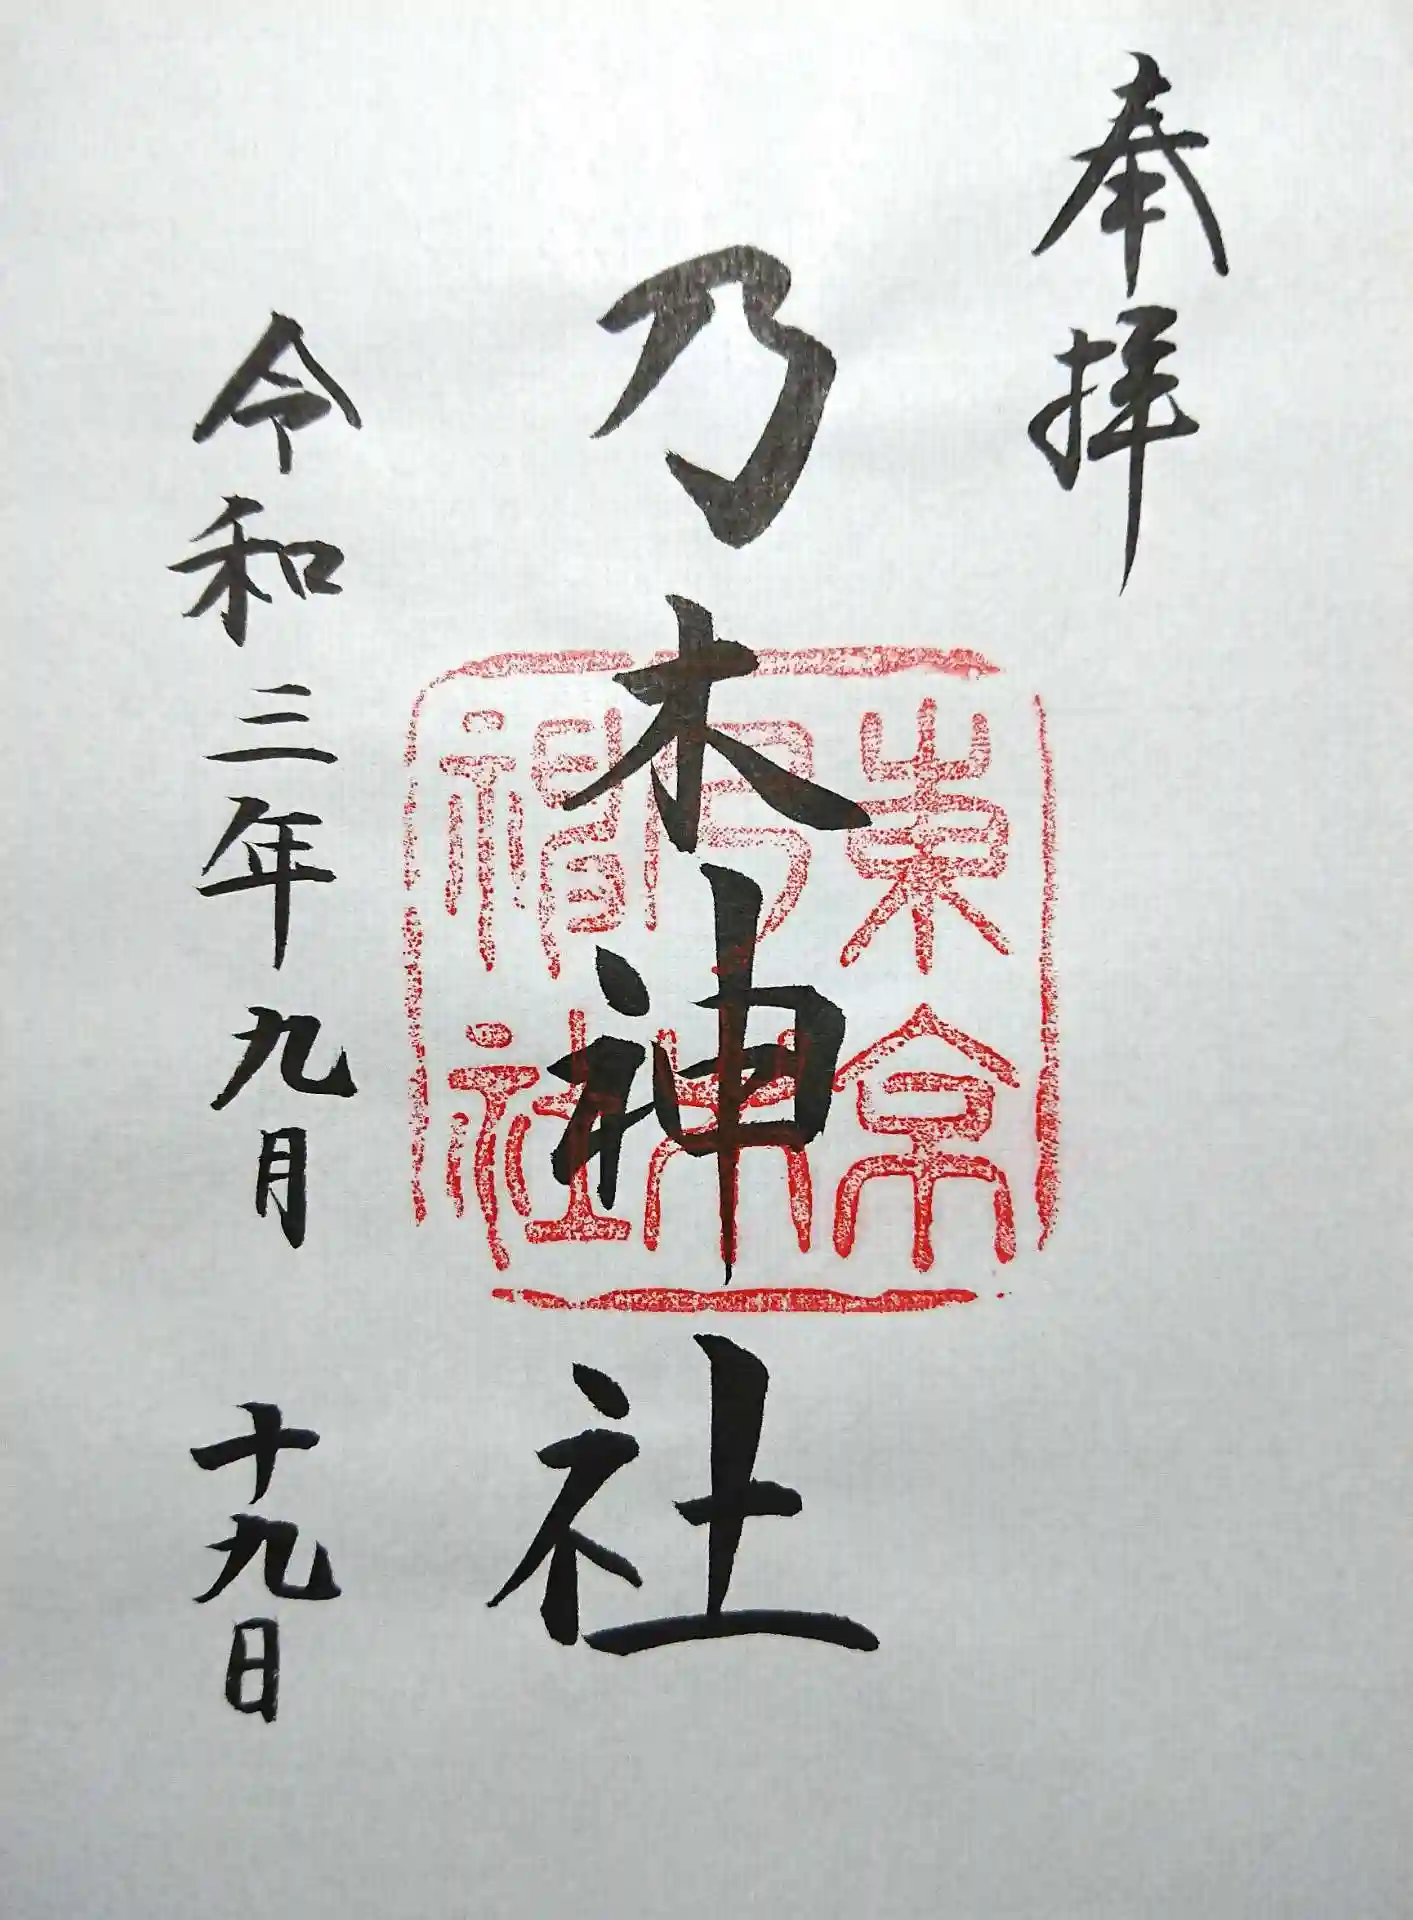 奉拝
乃木神社
東京
乃木
神社
令和三年九月十九日